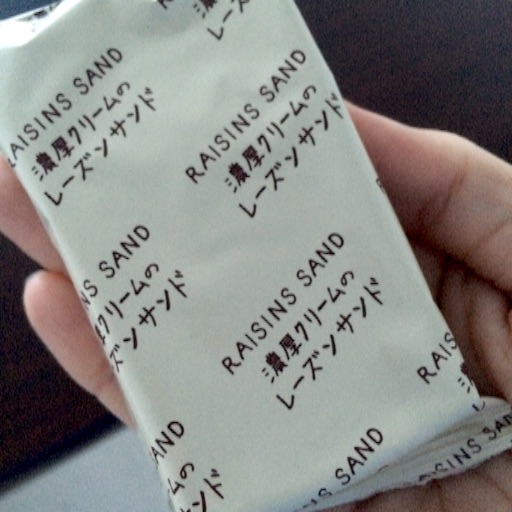 レーズ
RAISINS SAND
濃厚クリームの
レーズンサンド
RAISINS SAND
濃厚クリームの
レーズンサンド
NS SAND
リームの
ズンサンド
RAISINS SAND
濃厚クリームの
レーズンサンド
RAIS
AND
ムの
ンサンド
NS SAND
RAISINS SAND